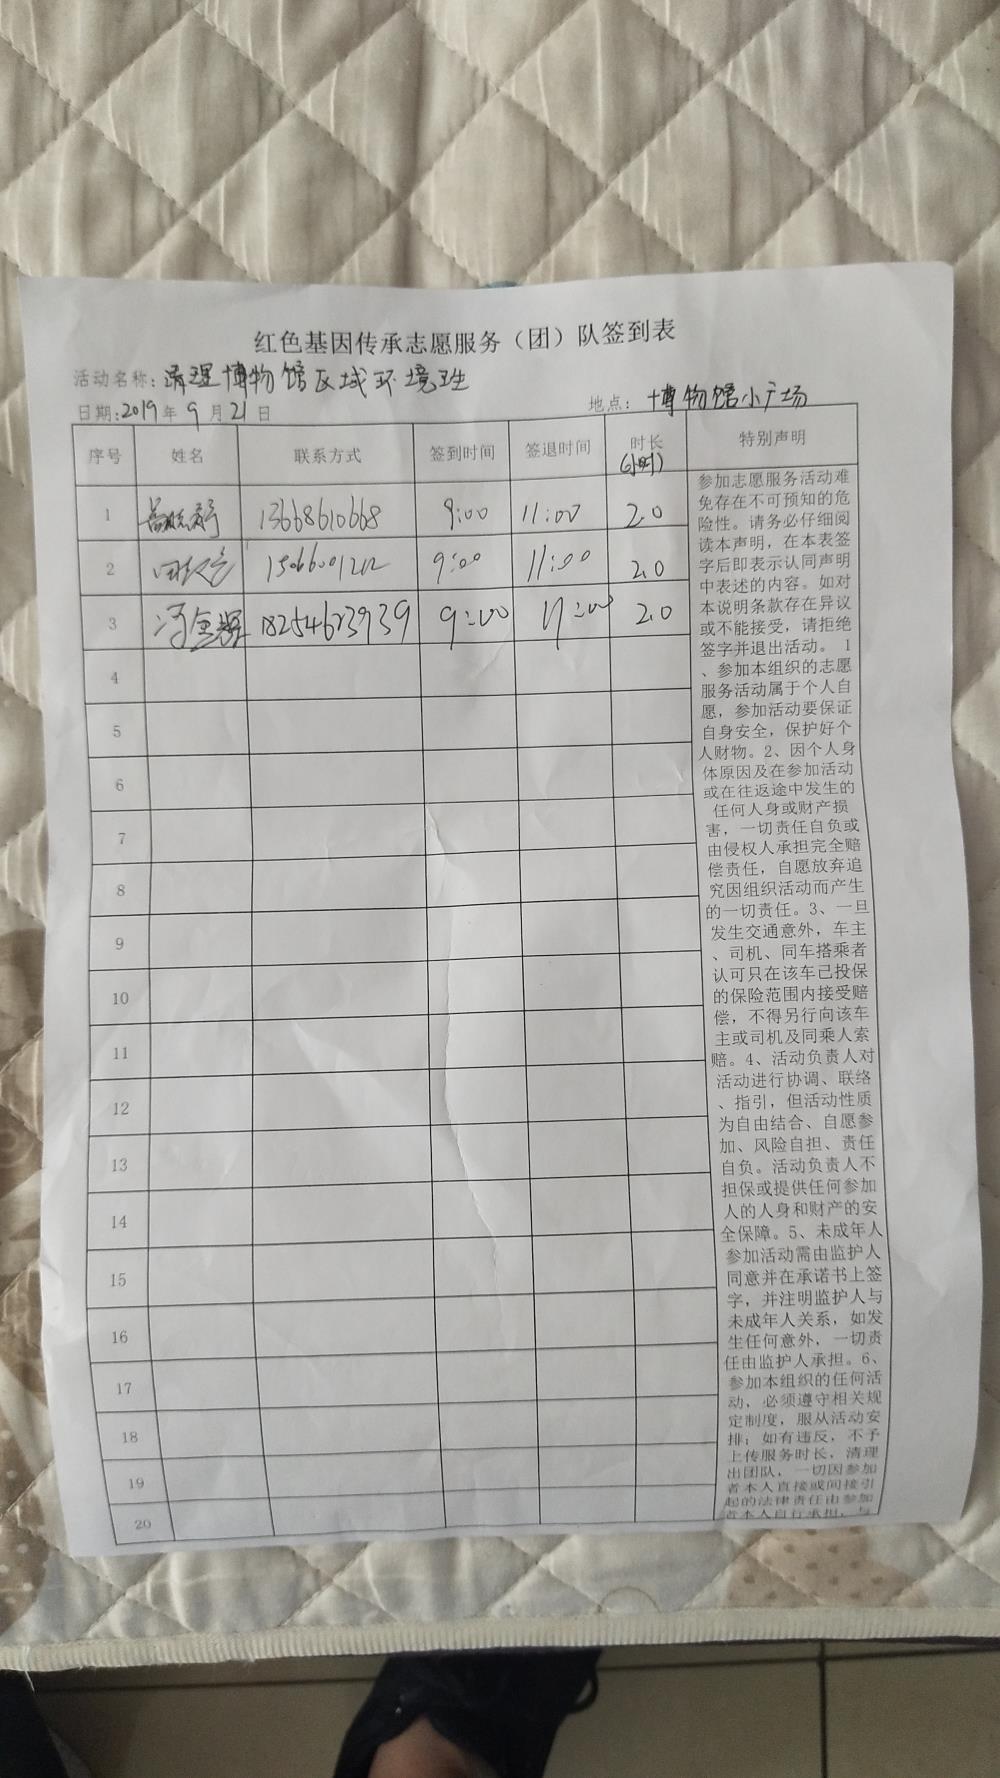 红色基因传承志愿服务（团）队签到表
活动名称：清理博物馆区域环境卫生
日期：2019年9月21日 地点：博物馆小广场
序号 姓名 联系方式 签到时间 签退时间 时长（小时） 特别声明
1 13668610668 9:00 11:00 2.0
2 9:00 11:00 2.0
3 冯金辉 18254623939 9:00 11:00 2.0
4
5
6
7
8
9
10
11
12
13
14
15
16
17
18
19
20
参加志愿服务活动难
免存在不可预知的危
险性。请务必仔细阅
读本声明，在本表签
字后即表示认同声明
中表述的内容。如对
本说明条款存在异议
或不能接受，请拒绝
签字并退出活动。 1
、参加本组织的志愿
服务活动属于个人自
愿，参加活动要保证
自身安全，保护好个
人财物。2、因个人身
体原因及在参加活动
或在往返途中发生的
任何人身或财产损
害，一切责任自负或
由侵权人承担完全赔
偿责任，自愿放弃追
究因组织活动而产生
的一切责任。3、一旦
发生交通意外，车主
、司机、同车搭乘者
认可只在该车已投保
的保险范围内接受赔
偿，不得另行向该车
主或司机及同乘人索
赔。4、活动负责人对
活动进行协调、联络
、指引，但活动性质
为自由结合、自愿参
加、风险自担、责任
自负。活动负责人不
担保或提供任何参加
人的人身和财产的安
全保障。5、未成年人
参加活动需由监护人
同意并在承诺书上签
字，并注明监护人与
未成年人关系，如发
生任何意外，一切责
任由监护人承担。6、
参加本组织的任何活
动，必须遵守相关规
定制度，服从活动安
排；如有违反，不予
上传服务时长，清理
出团队，一切因参加
者本人直接或间接引
起的法律责任由参加
者本人自行承担，与